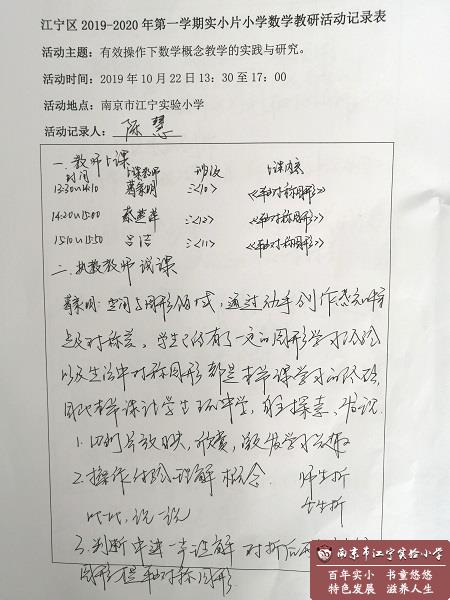 江宁区 2019-2020 年第一学期实小片小学数学教研活动记录表
活动主题：有效操作下数学概念教学的实践与研究。
活动时间：2019 年 10 月 22 日 13：30 至 17：00
活动地点：南京市江宁实验小学
活动记录人：陈慧
一、教师上课
时间 上课教师 班级 上课内容
13:30~14:10 葛家明 三<10> 《轴对称图形》
14:20~15:00 三<12> 《轴对称图形》
15:10~15:50 吕洁 三<11> 《轴对称图形》
二、执教教师说课
葛家明：空间与图形领域，通过动手创作
及对称美。学生已有了一定的图形学习经验
以及生活中对称图形都是本节课学习的经验，
因此本节课让学生玩中学，自主探索、发现
1.切片放映，欣赏，激发学习兴趣
2.操作体验理解概念 师生折
比比，说一说 生生折
3.判断中进一步理解 对折后
图形是轴对称图形
南京市江宁实验小学
百年实小 书童悠悠
特色发展 滋养人生